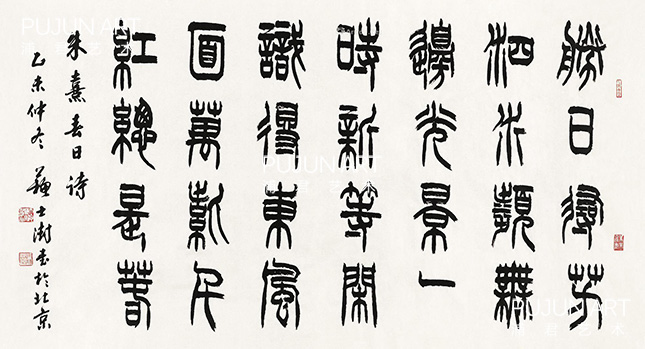 勝日尋芳
泗水濱無
邊光景一
時新等閒
識得東風
面萬紫千
紅總是春
朱熹春日詩
乙未仲冬蘇士澍書於北京
PUJUN ART
PUJUN ART
PUJUN ART